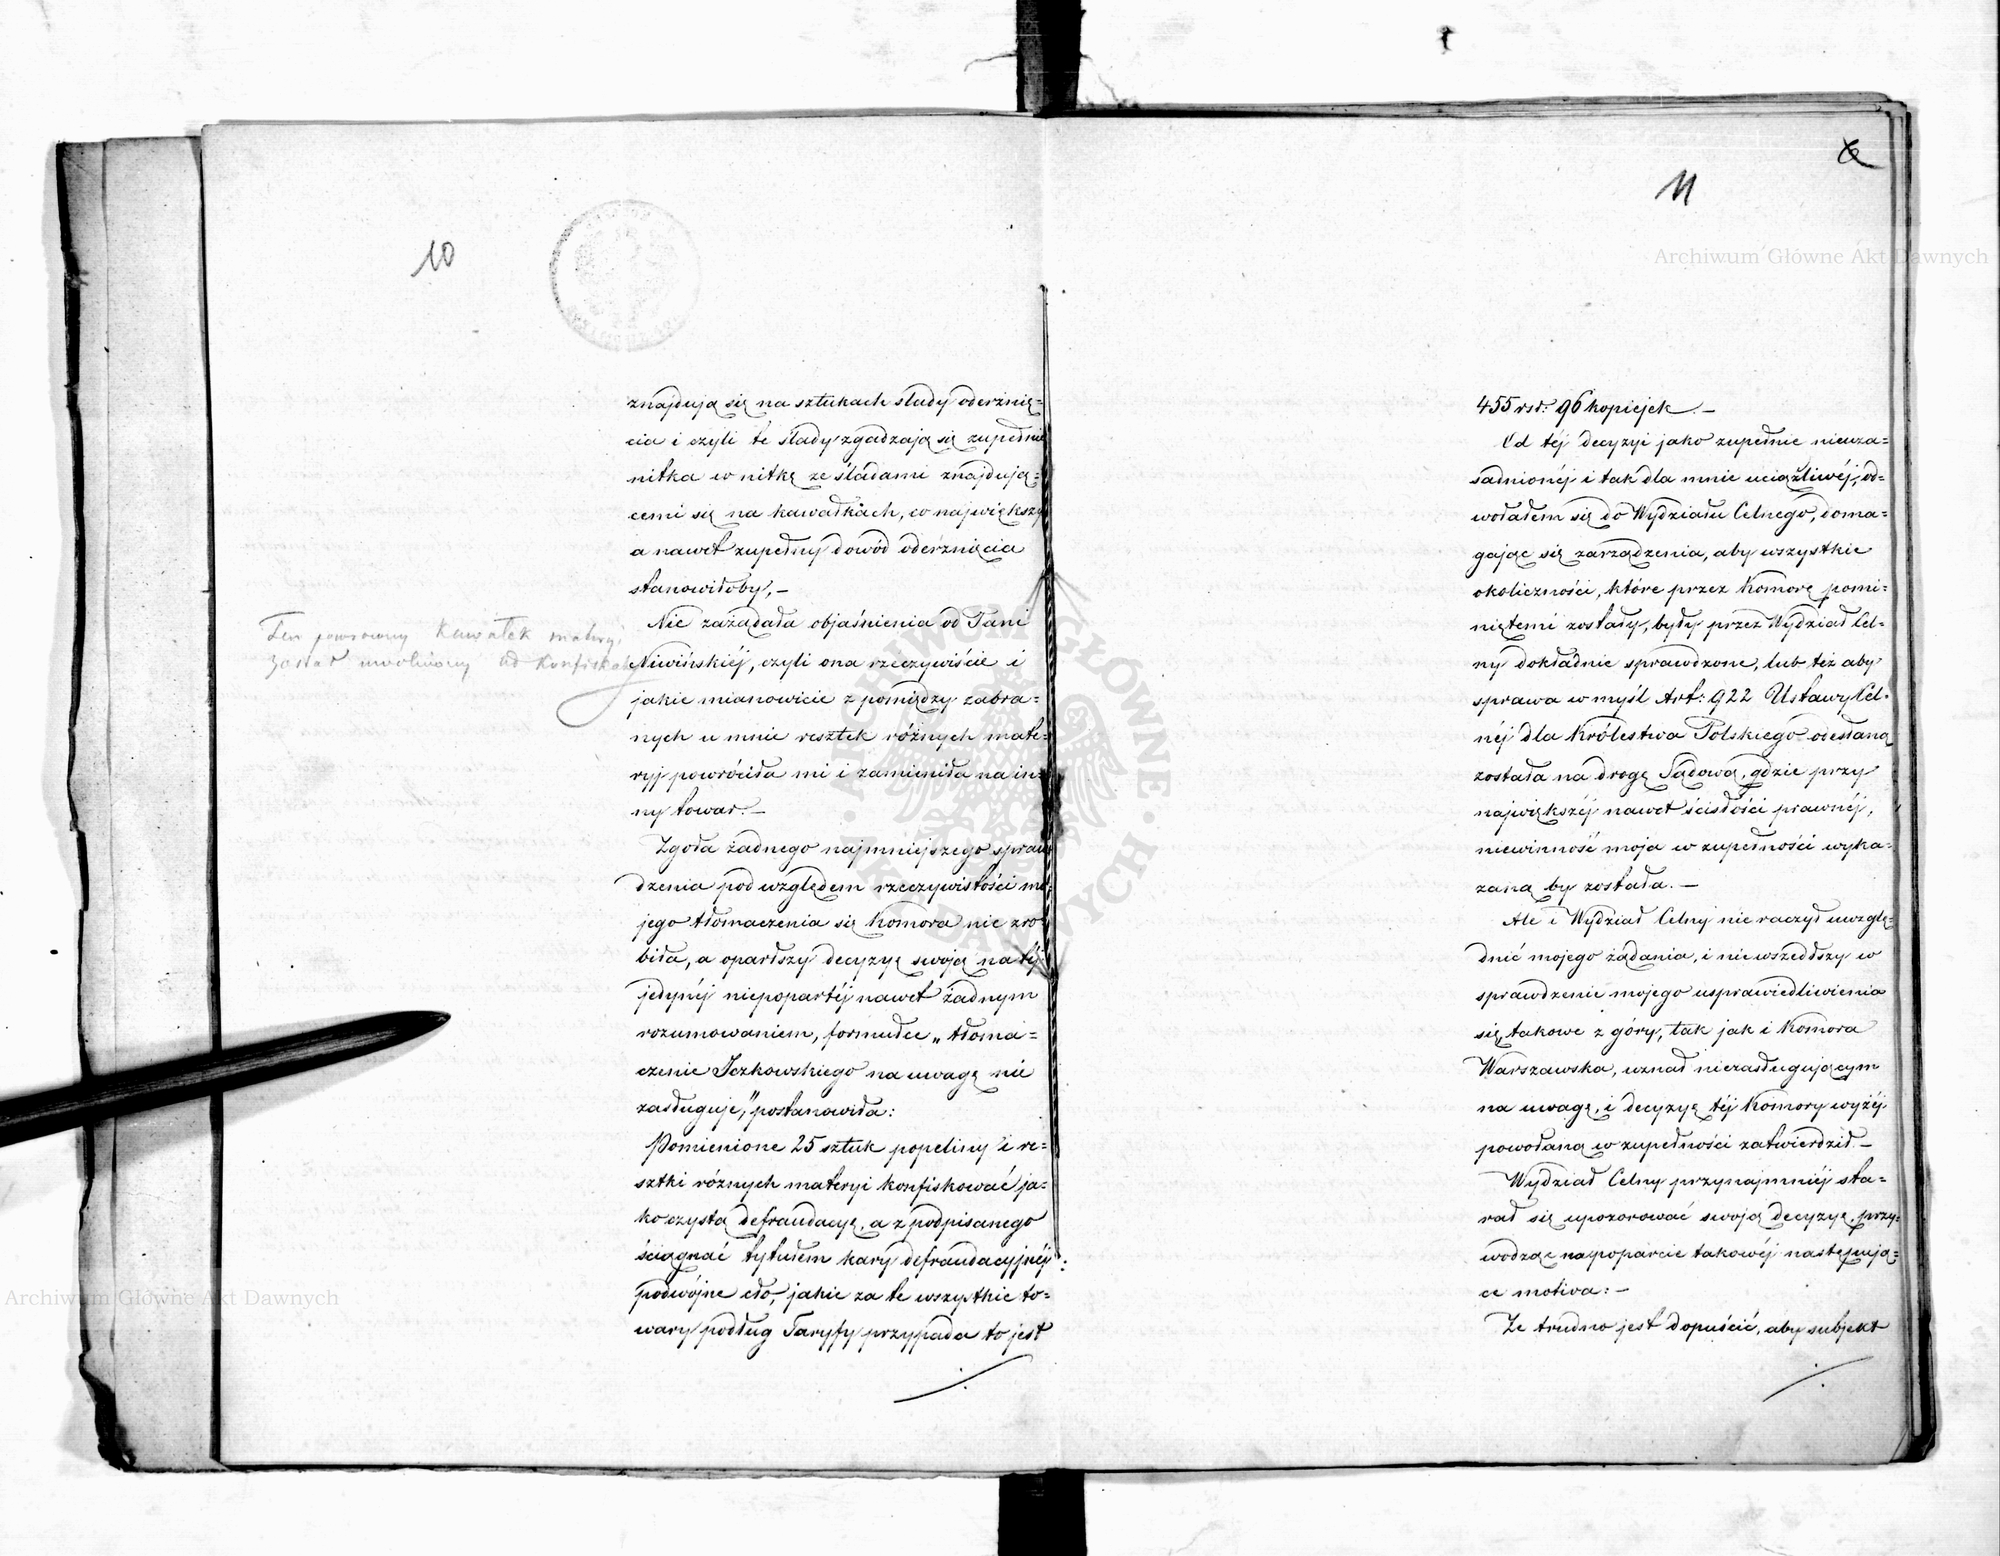 10
znajdują się na sztukach ślady oderznię=
cia i czyli te ślady zgadzają się zupełnie
nitka w nitkę ze śladami znajdują=
cemi się na kawałkach, co największy
a nawet zupełny dowód oderznięcia
stanowiłoby, –
Nie zażądała objaśnienia od Pani
Niwińskiéj, czyli ona rzeczywiście i
jakie mianowicie z pomiędzy zabra=
nych u mnie resztek różnych mate=
ryj powróciła mi i zamieniła na in=
ny towar. –
Zgoła żadnego najmniejszego spraw
dzenia pod względem rzeczywistości mo=
jego tłomaczenia się Komora nie zro=
biła, a oparłszy decyzyę swoję na téj
jedynéj niepopartéj nawet żadnym
rozumowaniem, formułce „tłoma=
czenie Iczkowskiego na uwagę nie
zasługuje," postanowiła:
Pomienione 25 sztuk popeliny i re=
sztki różnych materyi konfiskować ja=
ko czystą defraudacyę, a z podpisanego
ściągnąć tytułem kary defraudacyjnéj
podwójne cło, jakie za te wszystkie to=
wary podług Taryfy przypada to jest
Ten powrócony kawałek materyi
został uwolniony od konfiskaty
11
6
455 rsr: 96 kopiejek. –
Od téj decyzyi jako zupełnie nieuza=
sadnionéj i tak dla mnie uciążliwéj, od=
wołałem się do Wydziału Celnego, doma=
gając się zarządzenia, aby wszystkie
okoliczności, które przez Komorę pomi=
niętemi zostały, były przez Wydział Cel=
ny dokładnie sprawdzone, lub też aby
sprawa w myśl Art: 922 Ustawy Cel=
néj dla Królestwa Polskiego odesłaną
została na drogę Sądową, gdzie przy
największéj nawet ścisłości prawnéj,
niewinność moja w zupełności wyka=
zaną by została. –
Ale i Wydział Celny nie raczył uwzglę=
dnić mojego żądania, i nie wszedłszy w
sprawdzenie mojego usprawiedliwienia
się, takowe z góry, tak jak i Komora
Warszawska, uznał niezasługującym
na uwagę, i decyzyę téj Komory wyżéj
powołaną w zupełności zatwierdził. –
Wydział Celny przynajmniéj sta=
rał się upozorować swoją decyzyę, przy=
wodząc na poparcie takowéj następują=
ce motiva: –
Że trudno jest dopuścić, aby subjekt
Archiwum Główne Akt Dawnych
Archiwum Główne Akt Dawnych
ARCHIWUM GŁÓWNE AKT DAWNYCH